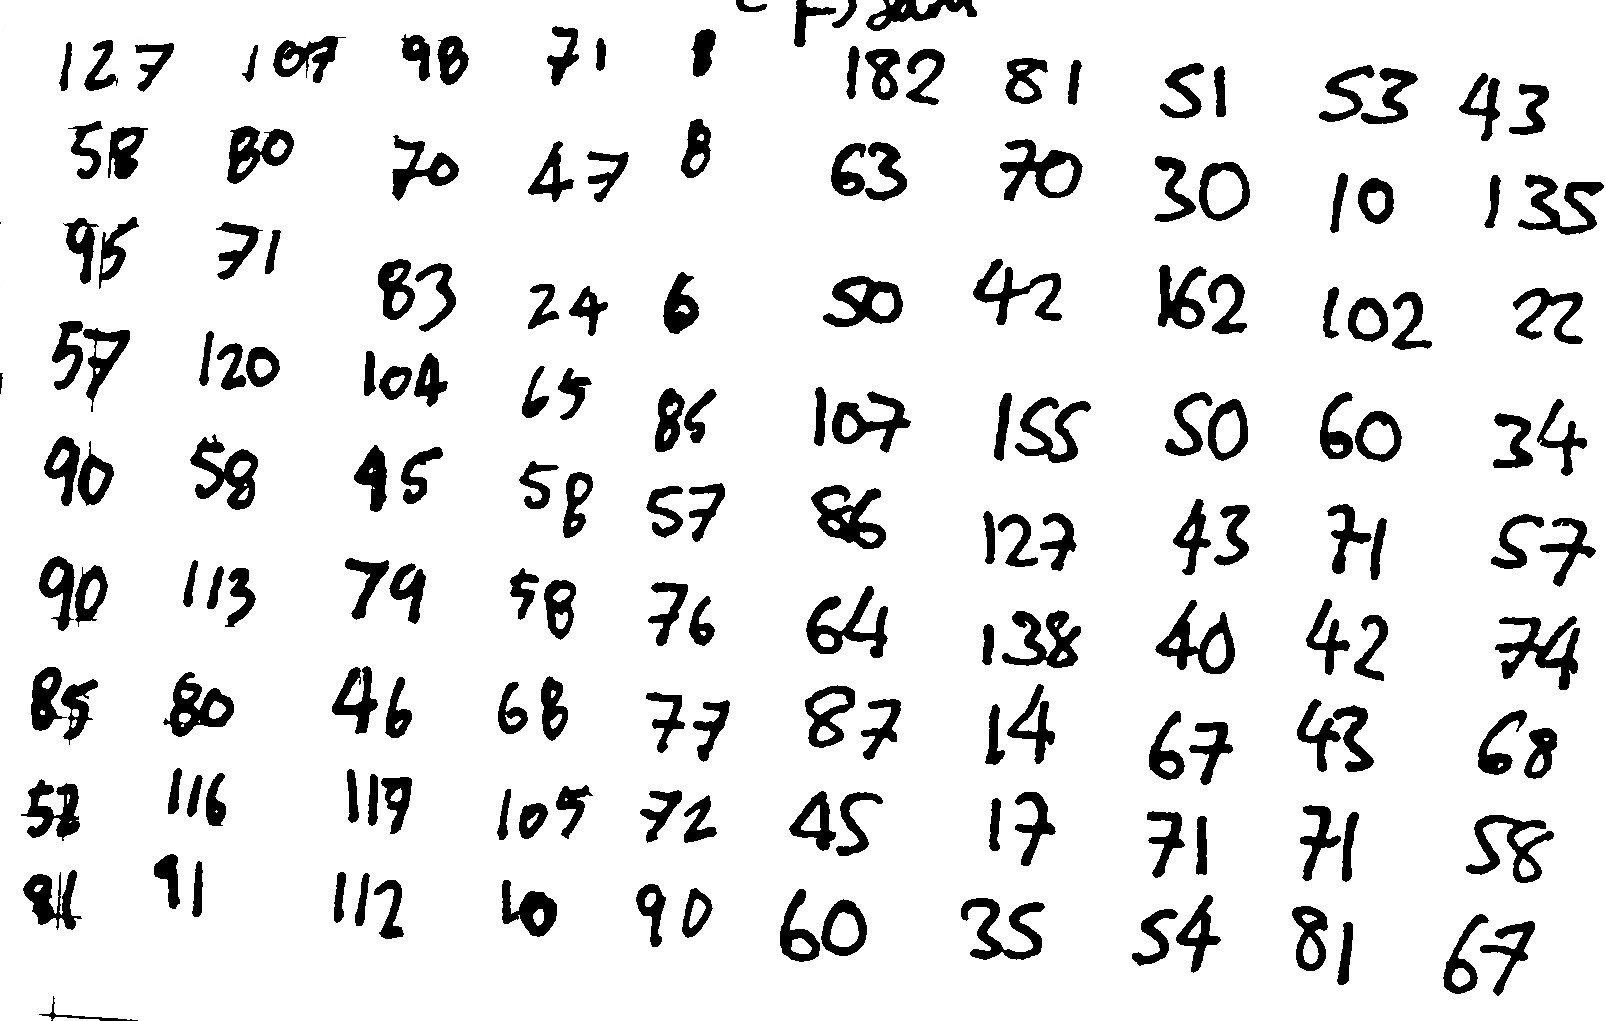 127 107 98 71 8 182 81 51 53 43
58 80 70 47 8 63 70 30 10 135
95 71 83 24 6 50 42 162 102 22
57 120 104 65 85 107 155 50 60 34
90 58 45 58 57 86 127 43 71 57
90 113 79 58 76 64 138 40 42 74
85 80 46 68 77 87 14 67 43 68
52 116 117 105 72 45 17 71 71 58
81 91 112 10 90 60 35 54 81 67